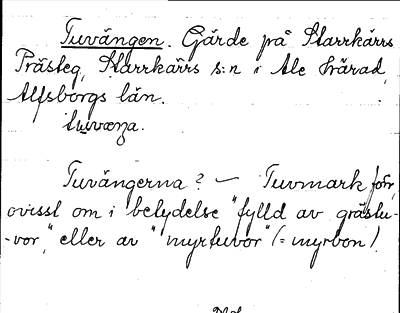 Tuvängen. Gärde på Starrkärrs
Prästeg, Starrkärrs s:n i Ale härad,
Älfsborgs län.
tuvæŋa.
Tuvängerna? — Tuvmark förr,
ovisst om i betydelse "fylld av grästu-
-vor," eller av "myrtuvor" (= myrbon).